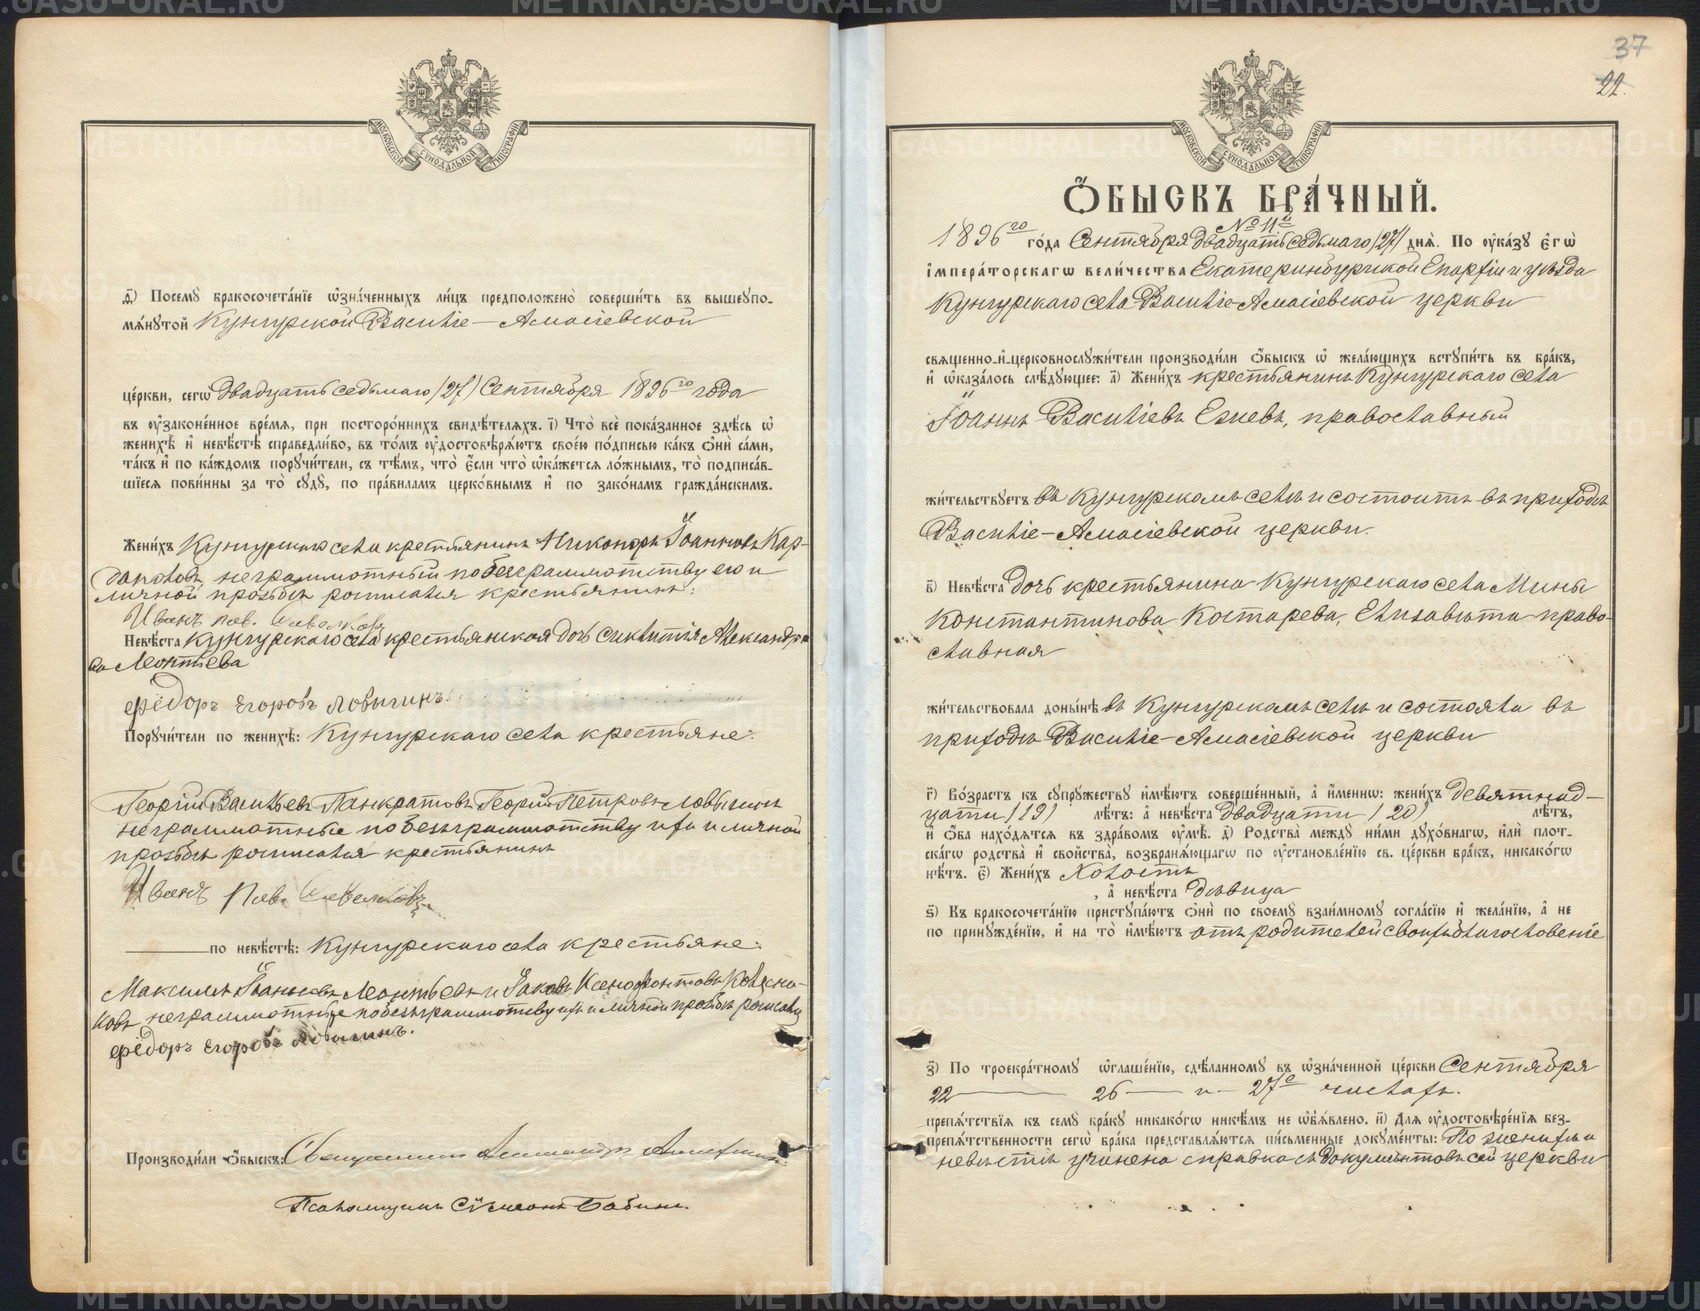 МОСКОВСКОЙ СѴНОДАЛЬНОЙ ТИПОГРАФІИ
д҃і) Посемꙋ бракосочета́нїе ѡ҆зна́ченныхъ ли́цъ предположено̀ соверши́ть въ вышеꙋпо-
мѧ́нꙋтой Кунгурской Василіе-Амасіевской
це́ркви, сегѡ̀ двадцать седьмаго /27/ Сентября 1896го года
въ ᲂу҆зако́ненное вре́мѧ, при посторо́ннихъ свидѣ́телѧхъ. і҃) Что̀ всѐ пока́занное здѣ́сь ѡ҆
женихѣ̀ и҆ невѣ́стѣ справедли́во, въ то́мъ ᲂу҆достовѣрѧ́ютъ свое́ю по́дписью ка́къ ѻ҆нѝ са́ми,
та́къ и҆ по ка́ждомъ порꙋчи́тели, съ тѣ́мъ, что̀ є҆́сли что̀ ѡ҆ка́жетсѧ ло́жнымъ, то̀ подписа́в-
шїесѧ пови́нны за то̀ сꙋдꙋ̀, по пра́виламъ церко́внымъ и҆ по зако́намъ гражда́нскимъ.
Жени́хъ Кунгурскаго села крестьянинъ Никоноръ Іоанновъ Кар-
даполовъ, неграммотный по безграммотству его и
личной прозьбѣ росписался крестьянинъ:
Иванъ пав.
Невѣ́ста Кунгурскаго села крестьянская дочь Александро-
ва Леонтьева
Ѳёдоръ Егоровъ Ловыгинъ.
Порꙋчи́тели по женихѣ̀: Кунгурскаго села крестьяне:
Георгій Васильевъ Панкратовъ Георгій Петровъ Ловыгинъ
неграммотные по безграммотству ихъ и личной
прозьбѣ росписался крестьянинъ
Иванъ Пав.
по невѣ́стѣ: Кунгурскаго села крестьяне:
Максимъ Іоанновъ Леонтьевъ и Іаковъ Ксенофонтовъ Колесни-
ковъ неграммотные по безграммотству ихъ и личной прозьбѣ росписался
Ѳёдоръ Егоровъ Ловыгинъ.
Производи́ли ѻ҆́быскъ: Священникъ Александръ
Псаломщикъ Сѵмеонъ Бабинъ.
37
22.
МОСКОВСКОЙ СѴНОДАЛЬНОЙ ТИПОГРАФІИ
Ѻ҆́БЫСКЪ БРА́ЧНЫЙ.
№ 11й
1896го го́да Сентября двадцать седьмаго /27/ днѧ̀. По ᲂу҆ка́зꙋ є҆гѡ̀
і҆мпера́торскагѡ вели́чества Екатеринбургской Епархіи и уѣзда
Кунгурскаго села Василіе-Амасіевской церкви
свѧще́нно-и҆-церковнослꙋжи́тели производи́ли ѻ҆́быскъ ѡ҆ жела́ющихъ встꙋпи́ть въ бра́къ,
и҆ ѡ҆каза́лось слѣ́дꙋющее: а҃) Жени́хъ крестьянинъ Кунгурскаго села
Іоаннъ Василіевъ Ехіевъ, православный
жи́тельствꙋетъ въ Кунгурскомъ селѣ и состоитъ въ приходѣ
Василіе-Амасіевской церкви.
в҃) Невѣ́ста дочь крестьянина Кунгурскаго села Мины
Константинова Костарева, Елизавета право-
славная
жи́тельствовала доны́нѣ въ Кунгурскомъ селѣ и состояла въ
приходѣ Василіе-Амасіевской церкви
г҃) Во́зрастъ къ сꙋпрꙋ́жествꙋ и҆мѣ́ютъ соверше́нный, а҆ и҆́меннѡ: жени́хъ девятнад-
цати /19/ лѣ́тъ: а҆ невѣ́ста двадцати /20/ лѣ́тъ,
и҆ ѻ҆́ба нахо́дѧтсѧ въ здра́вомъ ᲂу҆мѣ̀. д҃) Родства̀ междꙋ̀ ни́ми дꙋхо́внагѡ, и҆лѝ плот-
ска́гѡ родства̀ и҆ сво́йства, возбранѧ́ющагѡ по ᲂу҆становле́нїю св. це́ркви бра́къ, никако́гѡ
нѣ́тъ. є҃) Жени́хъ Холостъ
, а҆ невѣ́ста дѣвица
ѕ҃) Къ бракосочета́нїю пристꙋпа́ютъ ѻ҆нѝ по своемꙋ̀ взаи́мномꙋ согла́сїю и҆ жела́нїю, а҆ не
по принꙋжде́нїю, и҆ на то̀ и҆мѣ́ютъ отъ родителей своихъ благословеніе
з҃) По троекра́тномꙋ ѡ҆глаше́нїю, сдѣ́ланномꙋ въ ѡ҆зна́ченной це́ркви Сентября
22 — 26 — и — 27го числахъ.
препѧ́тствїѧ къ семꙋ̀ бра́кꙋ никако́гѡ никѣ́мъ не ѡ҆б̾ѧ́влено. и҃) Для ᲂу҆достовѣре́нїѧ без-
препѧ́тственности сегѡ̀ бра́ка представлѧ́ютсѧ пи́сьменные докꙋме́нты: По женихѣ и
невѣстѣ учинена справка съ документовъ сей церкви
METRIKI.GASO-URAL.RU